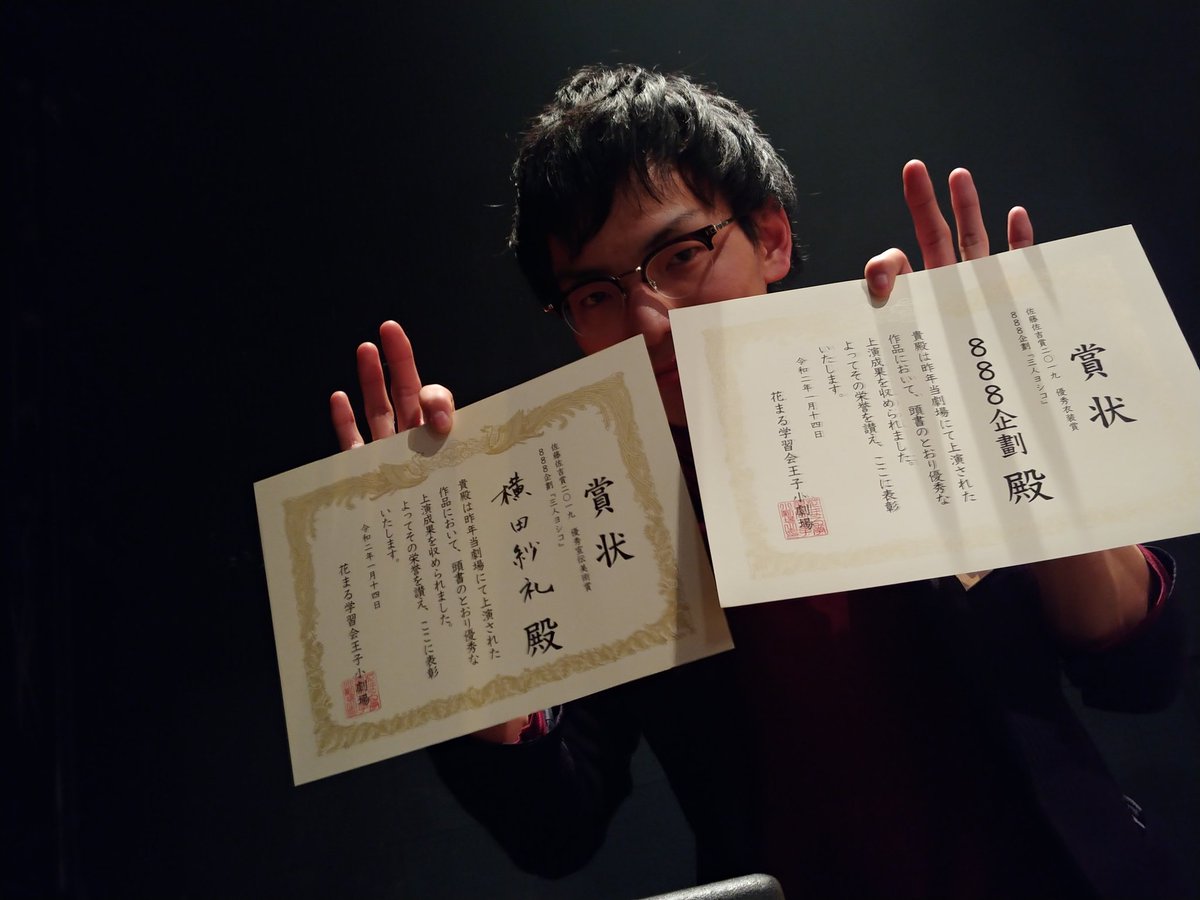 賞状
佐藤佐吉賞二〇一九 優秀宣伝美術賞
888企劃『三人ヨシコ』
横田紗礼 殿
貴殿は昨年当劇場にて上演された
作品において、頭書のとおり優秀な
上演成果を収められました。
よってその栄誉を讃え、ここに表彰
いたします。
令和二年一月十四日
花まる学習会王子小劇場
賞状
佐藤佐吉賞二〇一九 優秀衣装賞
888企劃『三人ヨシコ』
888企劃 殿
貴殿は昨年当劇場にて上演された
作品において、頭書のとおり優秀な
上演成果を収められました。
よってその栄誉を讃え、ここに表彰
いたします。
令和二年一月十四日
花まる学習会王子小劇場